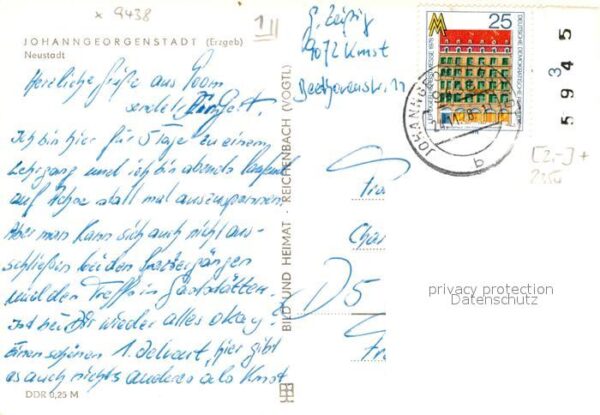 x 9438
1
JOHANNGEORGENSTADT (Erzgeb)
Neustadt
Herzliche Grüße aus
sendet
Ich bin hier für 5 Tage zu einem
Lehrgang und ich bin abends
auf Achse statt mal auszuspannen.
Aber man kann sich auch nicht aus-
schließen bei den Spaziergängen
und den Treffs in Gaststätten.
Ist bei Dir wieder alles okay?
Einen schönen 1. Advent, hier gibt
es auch nichts anderes als Kunst
DDR 0,25 M
BILD UND HEIMAT · REICHENBACH (VOGTL)
G. Leipzig
9072 Kmst
Beethovenstr. 11
25
DEUTSCHE DEMOKRATISCHE REPUBLIK
JOHANNGE
b
3
5945
[2,-] +
D 5
privacy protection
Datenschutz